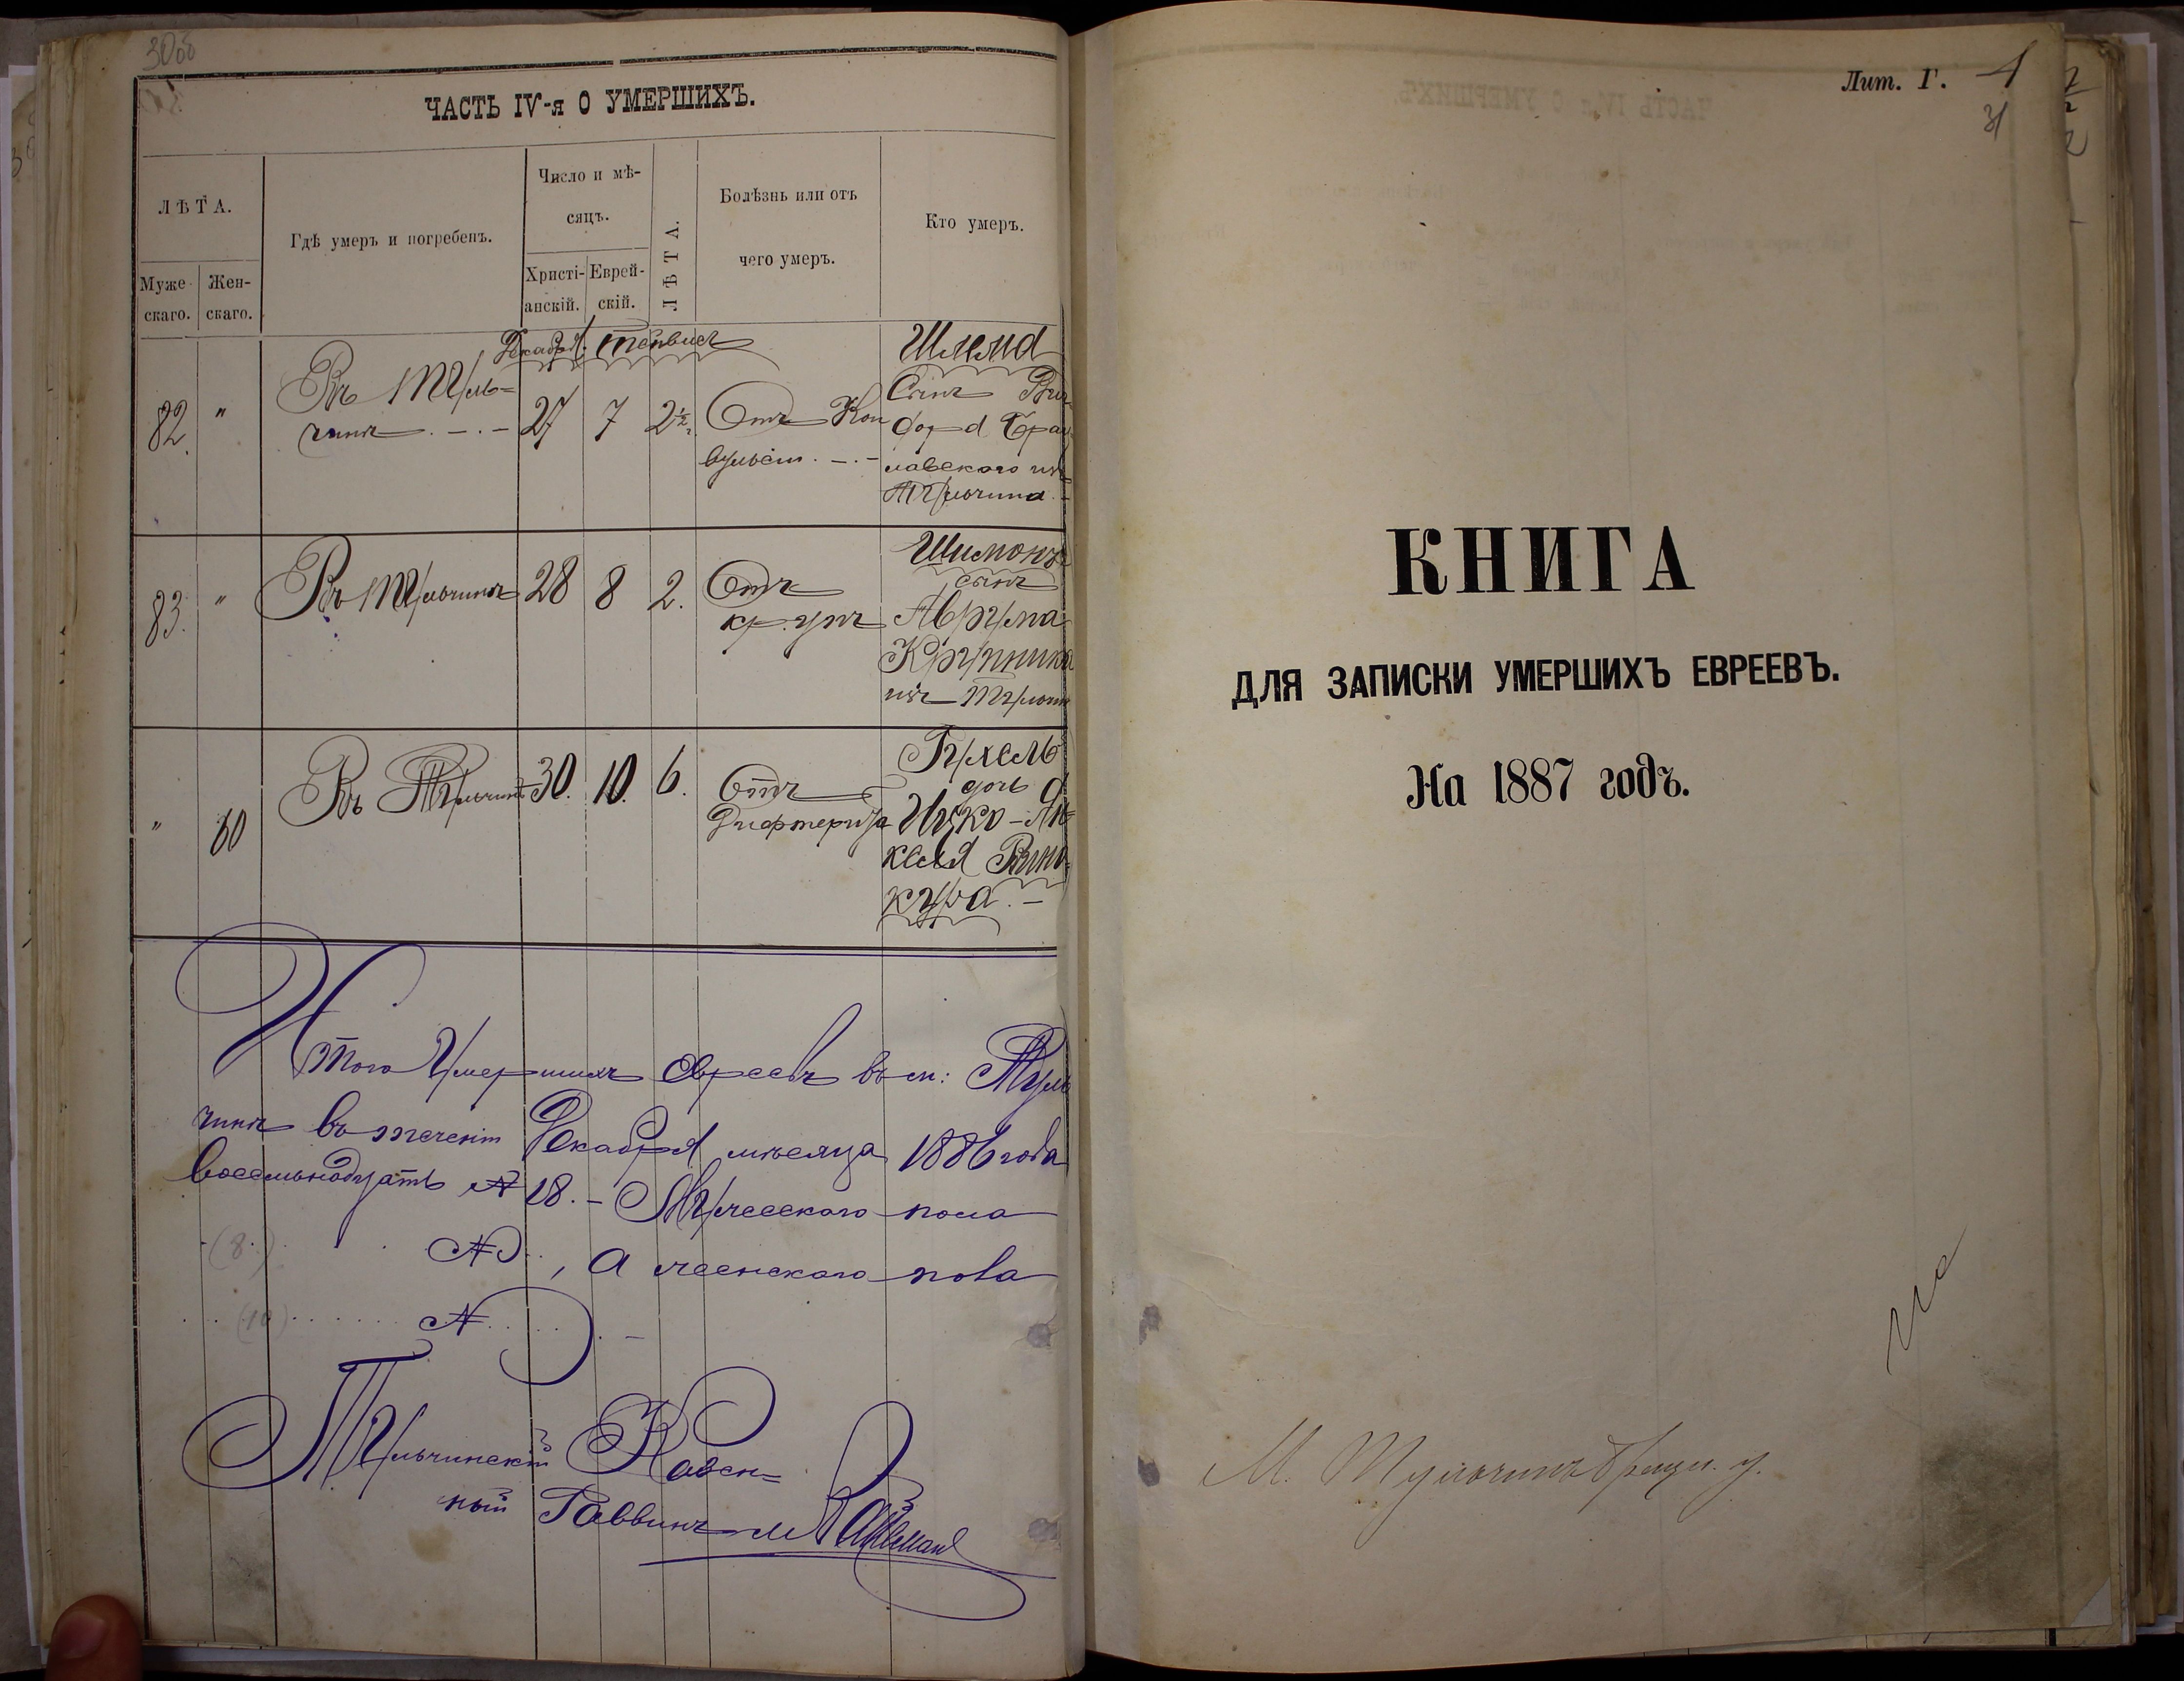 30об
ЧАСТЬ IV-я О УМЕРШИХЪ.
ЛѢТА.
Муже-
скаго.
Жен-
скаго.
Гдѣ умеръ и погребенъ.
Число и мѣ-
сяцъ.
Христі-
анскій.
Еврей-
скій.
ЛѢТА.
Болѣзнь или отъ
чего умеръ.
Кто умеръ.
Декабря. Тейвисъ
82. " Въ Туль-
чинѣ 27 7 2½ Отъ Кон
вульсіи Шлема
Сынъ
Брац
лавского изъ
Тульчина
83. " Въ Тульчинѣ 28 8 2. Отъ
крупъ Шимонъ
сынъ
Аврума
Крупника
изъ Тульчин
" 60 Въ Тульчинѣ 30. 10. 6. Отъ
Дифтерита Рухель
дочь
Ицко-
Вино-
кура. –
Итого Умершихъ Евреевъ въ м: Туль
чинѣ въ теченіи Декабря мѣсяца 1886 года
восемьнадцать № 18. – Мужеского пола
(8.) № , а женского пола
(10) №
Тульчинскій Казен-
ный Раввинъ
Лит. Г. 1
31
КНИГА
ДЛЯ ЗАПИСКИ УМЕРШИХЪ ЕВРЕЕВЪ.
На 1887 годъ.
М. Тульчинъ Брацл. у.